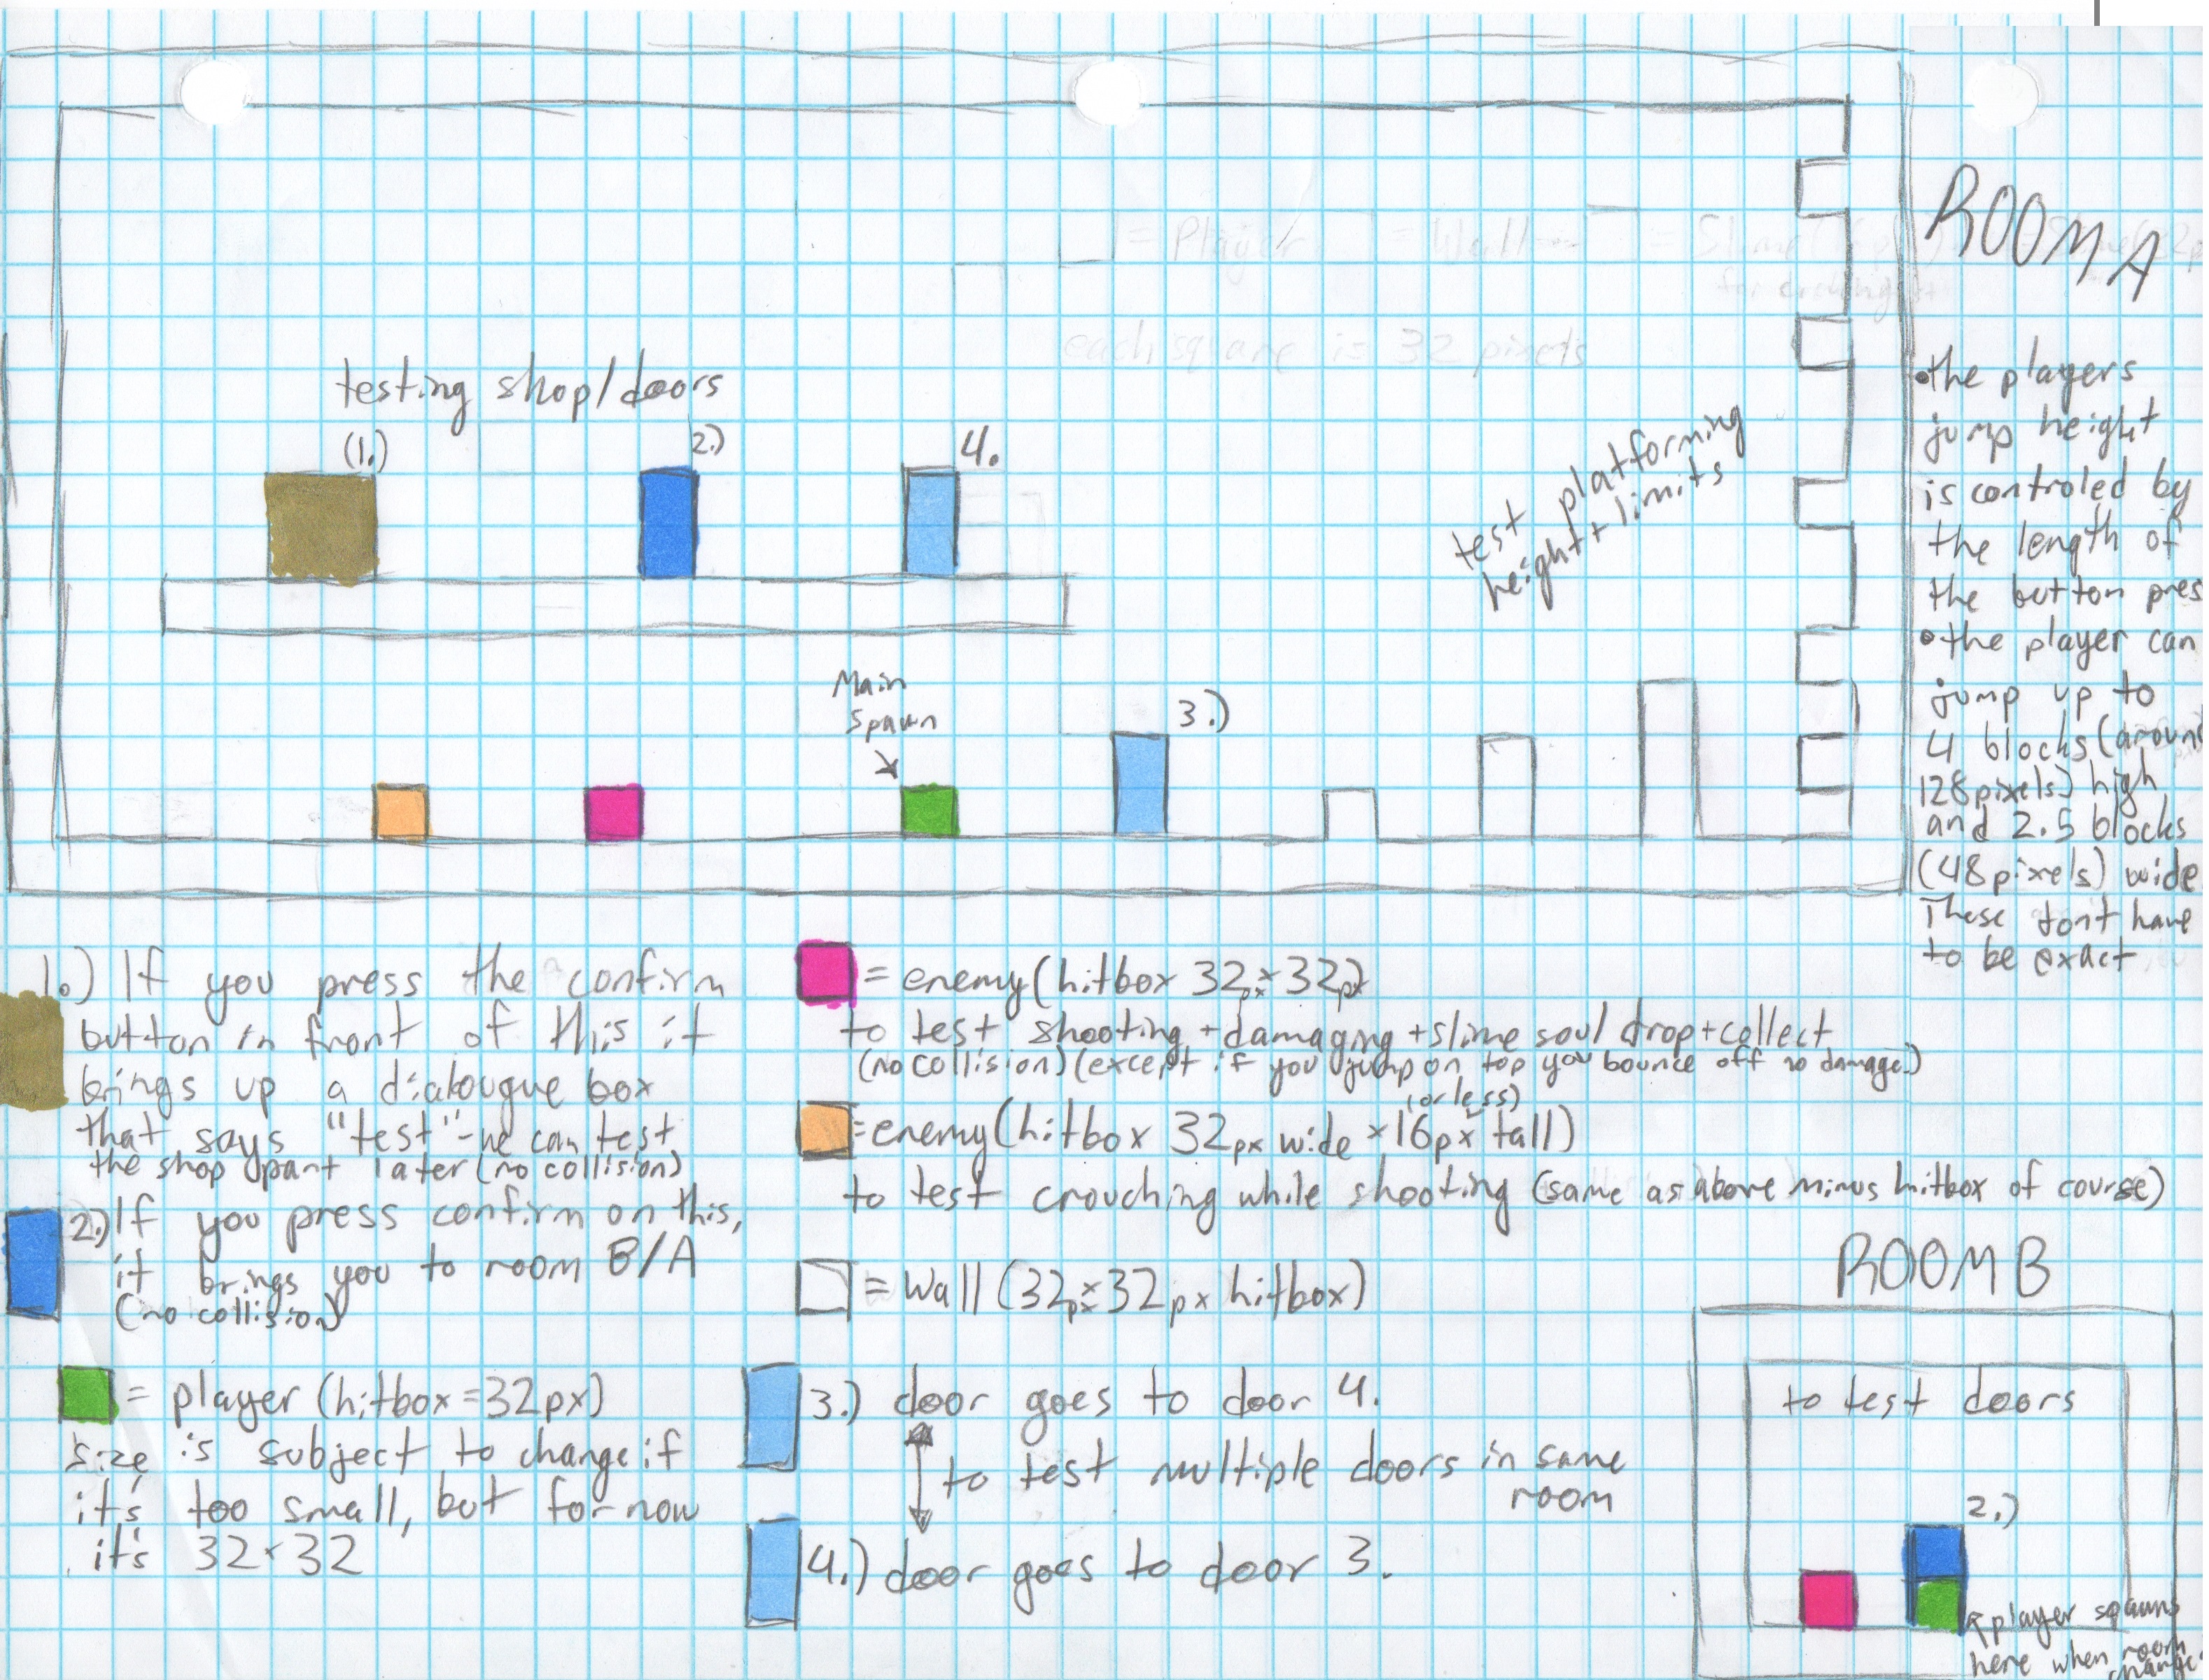 ROOM A
= Player
= Wall
= Slime
each square is 32 pixels
testing shop/doors
(1.)
2.)
4.
test platforming
height + limits
Main
Spawn
3.)
•the players
jump height
is controled by
the length of
the button pres
•the player can
jump up to
4 blocks (around
128 pixels) high
and 2.5 blocks
(48 pixels) wide
These don't have
to be exact
1.) If you press the confirm
button in front of this it
brings up a dialougue box
that says "test" - we can test
the shop part later (no collision)
2.) If you press confirm on this,
it brings you to room B/A
(no collision)
= player (hitbox = 32px)
size is subject to change if
it's too small, but for now
it's 32 × 32
= enemy (hitbox 32px × 32px)
to test shooting + damaging + slime soul drop + collect
(no collision) (except if you jump on top you bounce off no damage.)
(or less)
= enemy (hitbox 32px wide × 16px tall)
to test crouching while shooting (same as above minus hitbox of course)
= Wall (32px × 32px hitbox)
3.) door goes to door 4.
to test multiple doors in same
room
4.) door goes to door 3.
ROOM B
to test doors
2.)
player spawns
here when room
change